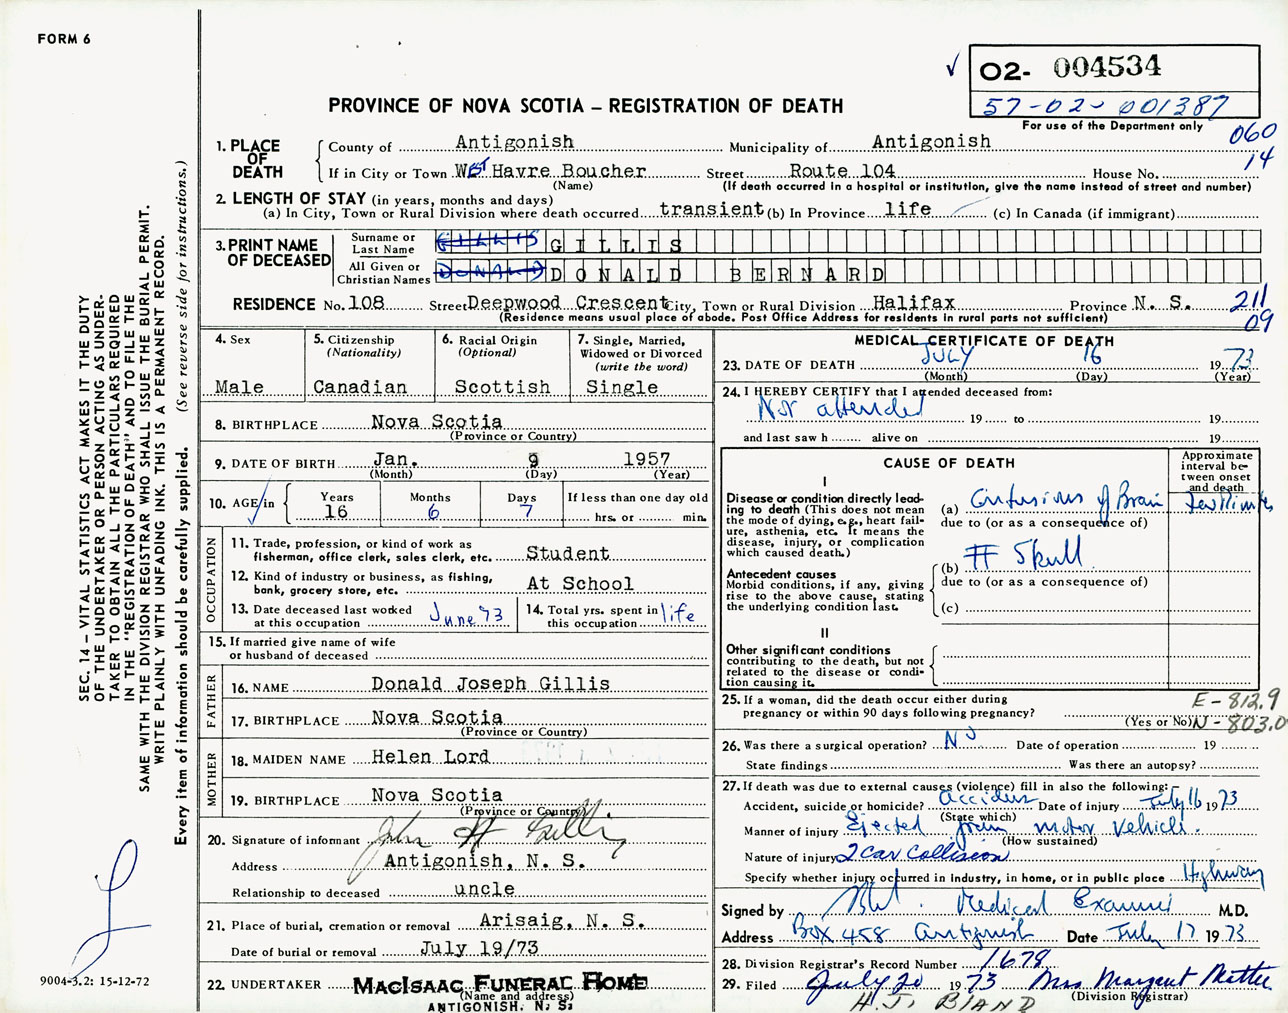 FORM 6
✓ 02- 004534
57-02-001387
For use of the Department only
060
14
PROVINCE OF NOVA SCOTIA – REGISTRATION OF DEATH
1. PLACE OF DEATH
County of Antigonish Municipality of Antigonish
If in City or Town West Havre Boucher Street Route 104 House No.
(Name) (If death occurred in a hospital or institution, give the name instead of street and number)
2. LENGTH OF STAY (in years, months and days)
(a) In City, Town or Rural Division where death occurred transient (b) In Province life (c) In Canada (if immigrant)
3. PRINT NAME OF DECEASED
Surname or Last Name GILLIS GILLIS
All Given or Christian Names DONALD DONALD BERNARD
RESIDENCE No. 108 Street Deepwood Crescent City, Town or Rural Division Halifax Province N. S. 211
(Residence means usual place of abode. Post Office Address for residents in rural parts not sufficient) 09
4. Sex Male
5. Citizenship (Nationality) Canadian
6. Racial Origin (Optional) Scottish
7. Single, Married, Widowed or Divorced (write the word) Single
8. BIRTHPLACE Nova Scotia
(Province or Country)
9. DATE OF BIRTH Jan. 9 1957
(Month) (Day) (Year)
10. AGE in Years 16 Months 6 Days 7 If less than one day old hrs. or min.
OCCUPATION
11. Trade, profession, or kind of work as fisherman, office clerk, sales clerk, etc. Student
12. Kind of industry or business, as fishing, bank, grocery store, etc. At School
13. Date deceased last worked at this occupation June '73
14. Total yrs. spent in this occupation life
15. If married give name of wife or husband of deceased
FATHER
16. NAME Donald Joseph Gillis
17. BIRTHPLACE Nova Scotia
(Province or Country)
MOTHER
18. MAIDEN NAME Helen Lord
19. BIRTHPLACE Nova Scotia
(Province or Country)
20. Signature of informant John H Gillis
Address Antigonish, N. S.
Relationship to deceased uncle
21. Place of burial, cremation or removal Arisaig, N. S.
Date of burial or removal July 19/73
22. UNDERTAKER MacIsaac Funeral Home
(Name and address)
ANTIGONISH. N. S.
MEDICAL CERTIFICATE OF DEATH
23. DATE OF DEATH JULY 16 19 73
(Month) (Day) (Year)
24. I HEREBY CERTIFY that I attended deceased from:
Not attended 19 to 19
and last saw h alive on 19
CAUSE OF DEATH
Approximate interval between onset and death
I
Disease or condition directly leading to death (This does not mean the mode of dying, e.g., heart failure, asthenia, etc. It means the disease, injury, or complication which caused death.)
(a) Contusions of Brain few Minutes
due to (or as a consequence of)
(b) # Skull
Antecedent causes
Morbid conditions, if any, giving rise to the above cause, stating the underlying condition last.
due to (or as a consequence of)
(c)
II
Other significant conditions contributing to the death, but not related to the disease or condition causing it.
25. If a woman, did the death occur either during pregnancy or within 90 days following pregnancy?
(Yes or No)
E-812.9
N-803.0
26. Was there a surgical operation? No Date of operation 19
State findings Was there an autopsy?
27. If death was due to external causes (violence) fill in also the following:
Accident, suicide or homicide? Accident Date of injury July 16 19 73
(State which)
Manner of injury Ejected from motor vehicle.
(How sustained)
Nature of injury 2 Car Collision
Specify whether injury occurred in industry, in home, or in public place Highway
Signed by Medical Examiner M.D.
Address Box 458 Antigonish Date July 17 19 73
28. Division Registrar's Record Number 1678
29. Filed July 20 19 73 Mrs. Margaret
(Division Registrar)
H.J. BLAND
SEC. 14 – VITAL STATISTICS ACT MAKES IT THE DUTY
OF THE UNDERTAKER OR PERSON ACTING AS UNDER-
TAKER TO OBTAIN ALL THE PARTICULARS REQUIRED
IN THE "REGISTRATION OF DEATH" AND TO FILE THE
SAME WITH THE DIVISION REGISTRAR WHO SHALL ISSUE THE BURIAL PERMIT.
WRITE PLAINLY WITH UNFADING INK. THIS IS A PERMANENT RECORD.
Every item of information should be carefully supplied. (See reverse side for instructions.)
9004-3.2: 15-12-72